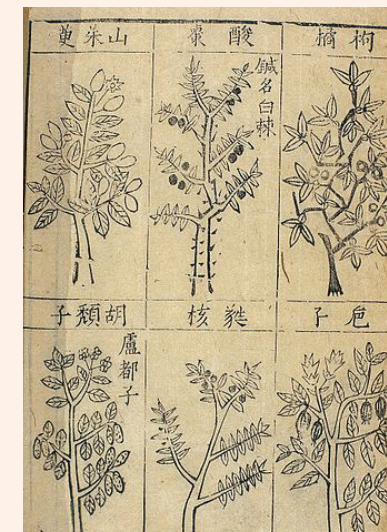 枸橘
酸棗
鍼名白棘
山茱萸
巵子
蕤核
胡頹子
盧都子